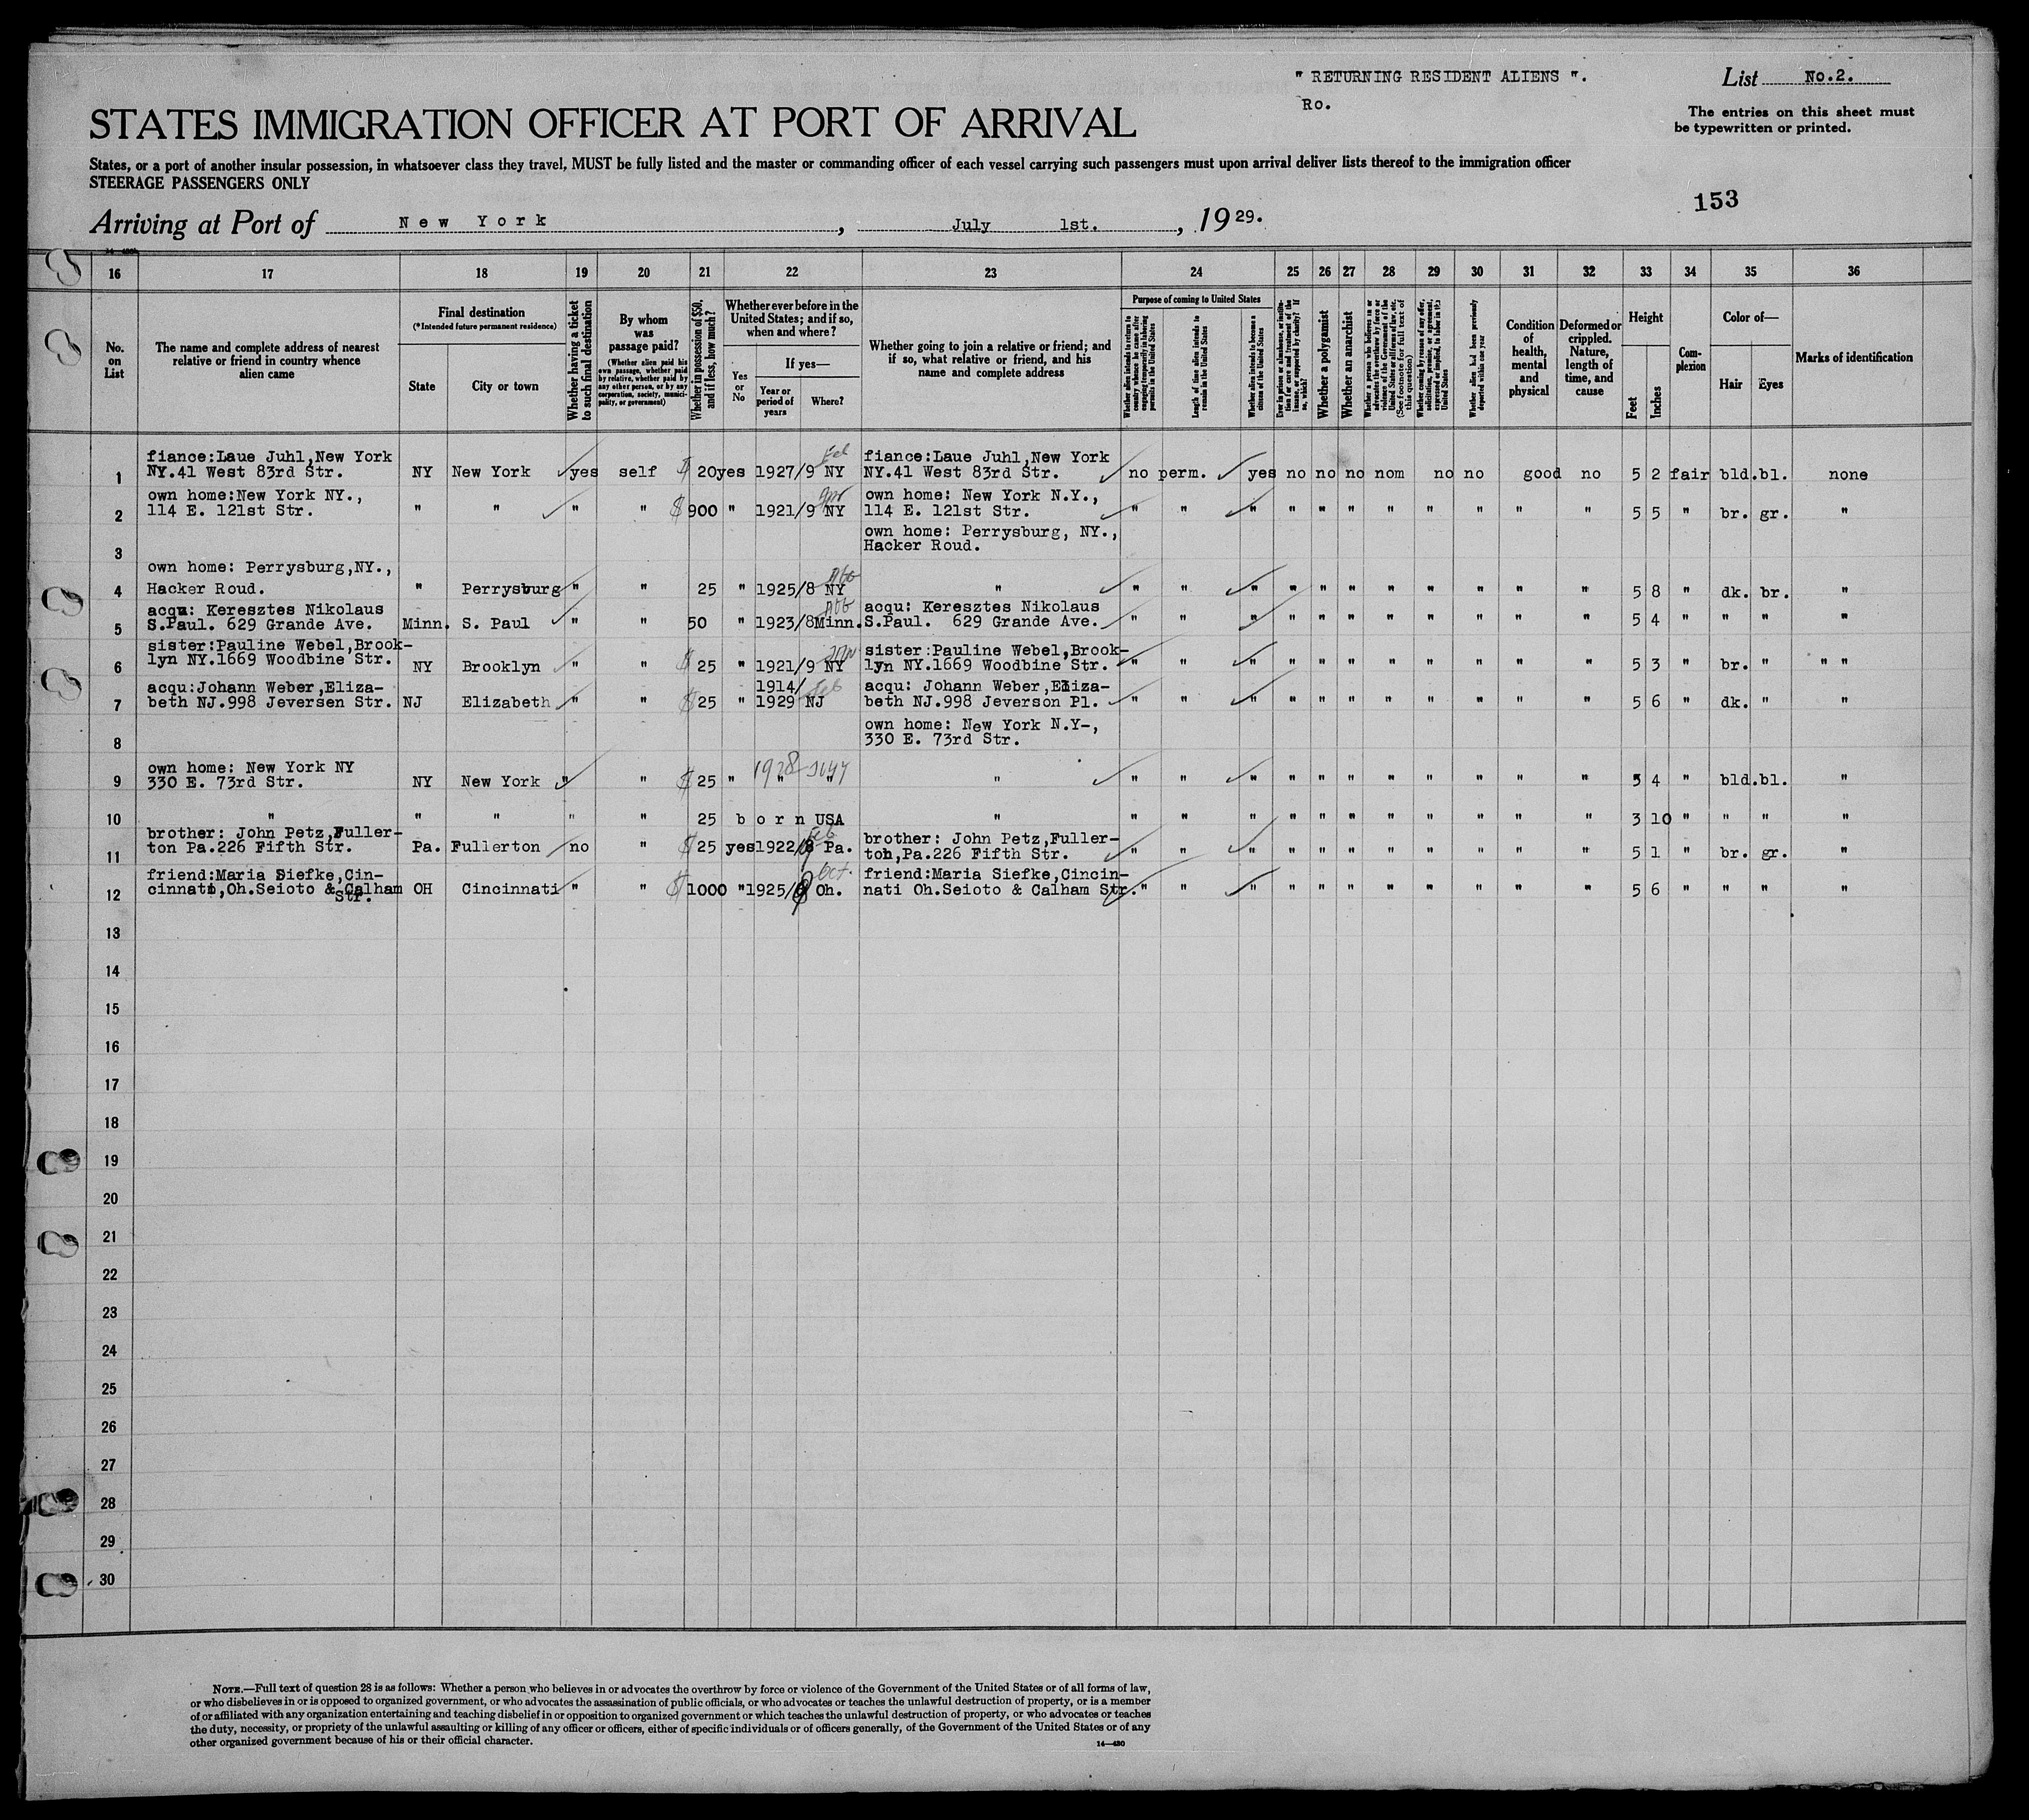 " RETURNING RESIDENT ALIENS ".
Ro.
List No.2.
The entries on this sheet must
be typewritten or printed.
STATES IMMIGRATION OFFICER AT PORT OF ARRIVAL
States, or a port of another insular possession, in whatsoever class they travel, MUST be fully listed and the master or commanding officer of each vessel carrying such passengers must upon arrival deliver lists thereof to the immigration officer
STEERAGE PASSENGERS ONLY
153
Arriving at Port of New York, July 1st., 1929.
16 17 18 19 20 21 22 23 24 25 26 27 28 29 30 31 32 33 34 35 36
No. on List
The name and complete address of nearest relative or friend in country whence alien came
Final destination
(*Intended future permanent residence)
State
City or town
Whether having a ticket to such final destination
By whom was passage paid?
(Whether alien paid his own passage, whether paid by relative, whether paid by any other person, or by any corporation, society, municipality, or government)
Whether in possession of $50, and if less, how much?
Whether ever before in the United States; and if so, when and where?
Yes or No
If yes—
Year or period of years
Where?
Whether going to join a relative or friend; and if so, what relative or friend, and his name and complete address
Purpose of coming to United States
Whether alien intends to return to country whence he came after engaging temporarily in laboring pursuits in the United States
Length of time alien intends to remain in the United States
Whether alien intends to become a citizen of the United States
Ever in prison or almshouse, or institution for care and treatment of the insane, or supported by charity? If so, which?
Whether a polygamist
Whether an anarchist
Whether a person who believes in or advocates the overthrow by force or violence of the Government of the United States or all forms of law, etc. (See footnote for full text of this question)
Whether coming by reason of any offer, solicitation, promise, or agreement, expressed or implied, to labor in the United States
Whether alien had been previously deported within one year
Condition of health, mental and physical
Deformed or crippled. Nature, length of time, and cause
Height
Feet
Inches
Complexion
Color of—
Hair
Eyes
Marks of identification
fiance:Laue Juhl,New York fiance:Laue Juhl,New York
1 NY.41 West 83rd Str. NY New York yes self $ 20 yes 1927/9 Feb NY NY.41 West 83rd Str. no perm. yes no no no nom no no good no 5 2 fair bld. bl. none
own home:New York NY., own home: New York N.Y.,
2 114 E. 121st Str. " " " " $900 " 1921/9 NY 114 E. 121st Str. " " " " " " " " " " " 5 5 " br. gr. "
own home: Perrysburg, NY.,
3 Hacker Roud.
own home: Perrysburg,NY.,
4 Hacker Roud. " Perrysburg " " 25 " 1925/8 NY " " " " " " " " " " " " 5 8 " dk. br. "
acqu: Keresztes Nikolaus acqu: Keresztes Nikolaus
5 S.Paul. 629 Grande Ave. Minn. S. Paul " " 50 " 1923/8 Minn. S.Paul. 629 Grande Ave. " " " " " " " " " " " 5 4 " " " "
sister:Pauline Webel,Brook- sister:Pauline Webel,Brook-
6 lyn NY.1669 Woodbine Str. NY Brooklyn " " $ 25 " 1921/9 NY lyn NY.1669 Woodbine Str. " " " " " " " " " " " 5 3 " br. " " "
acqu:Johann Weber,Eliza- 1914/ Feb acqu: Johann Weber,Eliza-
7 beth NJ.998 Jeversen Str. NJ Elizabeth " " $ 25 " 1929 NJ beth NJ.998 Jeverson Pl. " " " " " " " " " " " 5 6 " dk. " "
own home: New York N.Y-,
8 330 E. 73rd Str.
own home: New York NY 1928
9 330 E. 73rd Str. NY New York " " $ 25 " " " " " " " " " " " " " " " " 5 4 " bld. bl. "
10 " " " " " 25 born USA " " " " " " " " " " " " 3 10 " " " "
brother: John Petz,Fuller- Feb brother: John Petz,Fuller-
11 ton Pa.226 Fifth Str. Pa. Fullerton no " $ 25 yes 1922/9 Pa. ton,Pa.226 Fifth Str. " " " " " " " " " " " 5 1 " br. gr. "
friend:Maria Siefke,Cin- Oct. friend:Maria Siefke,Cincin-
12 cinnati,Oh.Seioto & Calham Str. OH Cincinnati " " $ 1000 " 1925/ Oh. nati Oh.Seioto & Calham Str. " " " " " " " " " " " 5 6 " " " "
13
14
15
16
17
18
19
20
21
22
23
24
25
26
27
28
29
30
NOTE.—Full text of question 28 is as follows: Whether a person who believes in or advocates the overthrow by force or violence of the Government of the United States or of all forms of law,
or who disbelieves in or is opposed to organized government, or who advocates the assassination of public officials, or who advocates or teaches the unlawful destruction of property, or is a member
of or affiliated with any organization entertaining and teaching disbelief in or opposition to organized government or which teaches the unlawful destruction of property, or who advocates or teaches
the duty, necessity, or propriety of the unlawful assaulting or killing of any officer or officers, either of specific individuals or of officers generally, of the Government of the United States or of any
other organized government because of his or their official character.
14—430